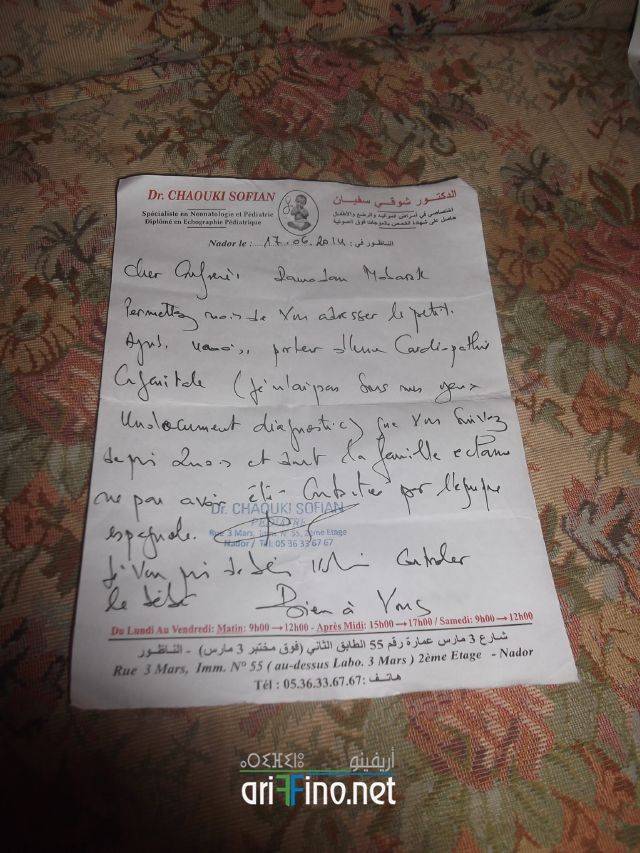 Dr. CHAOUKI SOFIAN
الدكتور شوقي سفيان
Spécialiste en Neonatologie et Pédiatrie
Diplômé en Echographie Pédiatrique
اختصاصي في أمراض المواليد والرضع والأطفال
حاصل على شهادة الفحص بالموجات فوق الصوتية
Nador le : 17.06.2014 الناظور في :
Cher Confrère, Ramadan Mobarak
Permettez moi de vous adresser le petit.
porteur d'une Cardiopathie
Congénitale (je n'ai pas sous mes yeux
un document diagnostic) que vous suivez
depuis 2 mois et dont la famille
ne pas avoir été par l'équipe
espagnole.
Dr. CHAOUKI SOFIAN
PEDIATRE
Rue 3 Mars, Imm. N° 55, 2ème Etage
Nador / Tél: 05 36 33 67 67
Je vous prie de bien Contrôler
le bébé Bien à Vous
Du Lundi Au Vendredi: Matin: 9h00 → 12h00 - Après Midi: 15h00 → 17h00 / Samedi: 9h00 → 12h00
شارع 3 مارس عمارة رقم 55 الطابق الثاني (فوق مختبر 3 مارس) - الناظور
Rue 3 Mars, Imm. N° 55 ( au-dessus Labo. 3 Mars ) 2ème Etage - Nador
Tél : 05.36.33.67.67 : هاتف
ⴰⵔⵉⴼⵉⵏⵓ أريفينو
ariffino.net